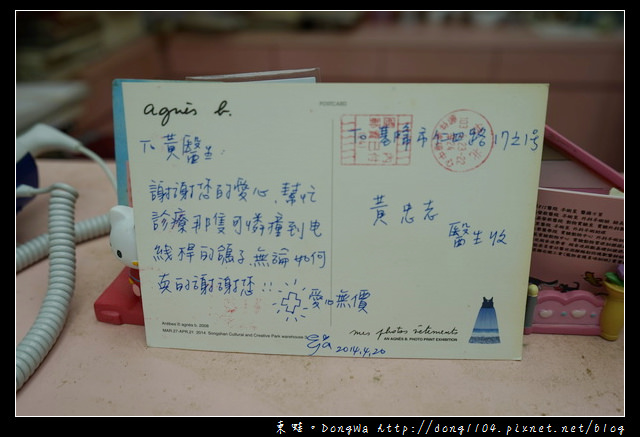 agnès b.
POSTCARD
To 黃醫生:
謝謝您的愛心,幫忙
診療那隻可憐撞到电
線桿的鴿子,無論如何
真的謝謝您!!
愛心無價
2014.4.20
To 基隆市仁四路17之1号
黃忠志
醫生收
Andrea © agnès b. 2009
MAR.27-APR.27, 2014 Songshan Cultural and Creative Park warehouse
mes photos vêtements
AN AGNÈS B. PHOTO PRINT EXHIBITION
東蛙。DongWa http://dong1104.pixnet.net/blog